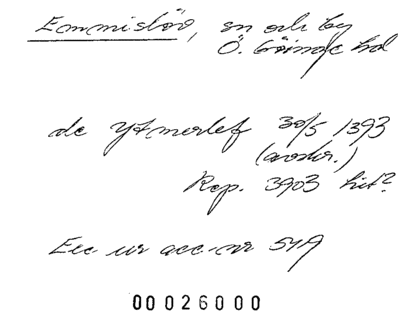 Emmislöv, sn och by
Ö. Göinge hd
de Ytmerlef 30/5 1393
(avskr.)
Rep. 3903 hit?
Exc. ur acc.-nr 519
00026000